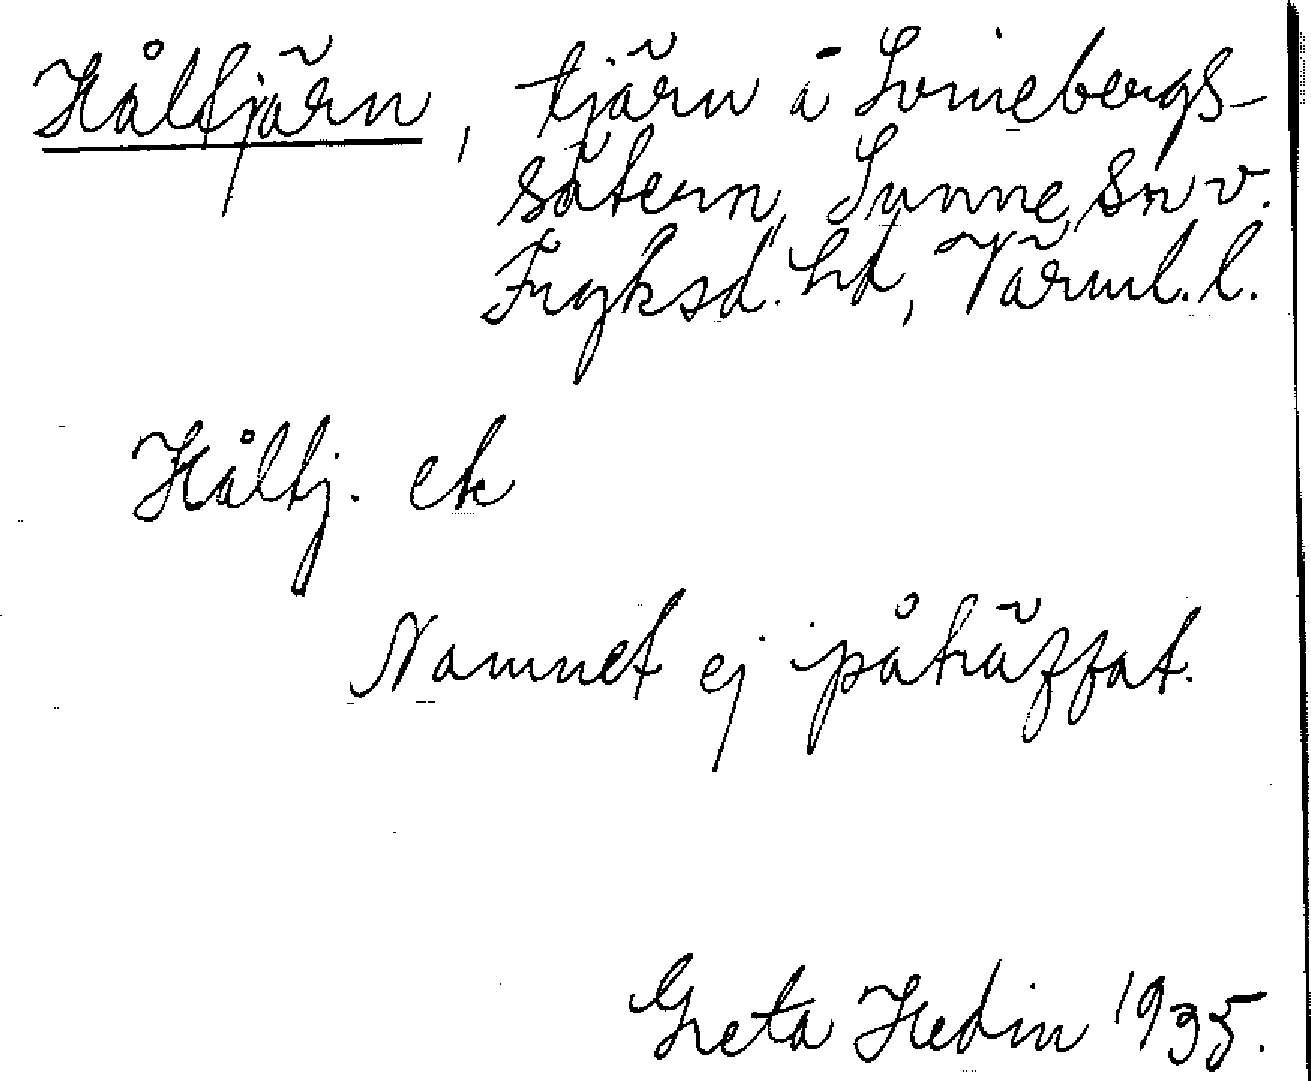 Håltjärn, tjärn å Svinebergs-
sätern, Sunne sn v.
Fryksd. hd, Värml. l.
Håltj. ek
Namnet ej påträffat.
Greta Hedin 1935.